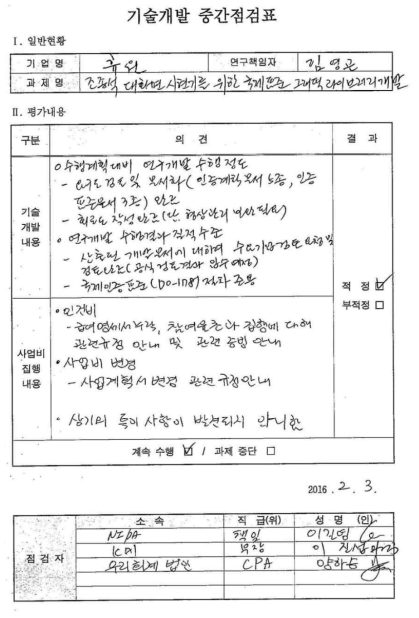 기술개발 중간점검표
I. 일반현황
기 업 명 휴원 연구책임자 김영곤
과 제 명 조종석 대화면 시현기를 위한 국제표준 그래픽 라이브러리 개발
II. 평가내용
구분 의 견 결 과
기술 개발 내용
○ 수행계획 대비 연구개발 수행 정도
- 요구도 검토 및 문서화 (인증계획 문서 5종, 인증
표준문서 3종) 완료
- 회로도 작성 완료 (단, 형상관리 필요)
○ 연구개발 수행결과 질적 수준
- 산출된 개발문서에 대하여 수요기관 검토 요청 및
검토 완료 (공식 검토결과 접수 예정)
- 국제인증표준 (DO-178) 절차 준용
적 정 ☑
부적정 □
사업비 집행 내용
• 인건비
- 급여명세서 누락, 참여율 초과 집행에 대해
관련규정 안내 및 관련 증빙 안내
• 사업비 변경
- 사업계획서 변경 관련 규정 안내
• 상기외 특이사항이 발견되지 아니함
계속 수행 ☑ / 과제 중단 □
2016. 2. 3.
점 검 자
소 속 직 급(위) 성 명 (인)
NIPA 책임
부장 이
우리회계법인 CPA